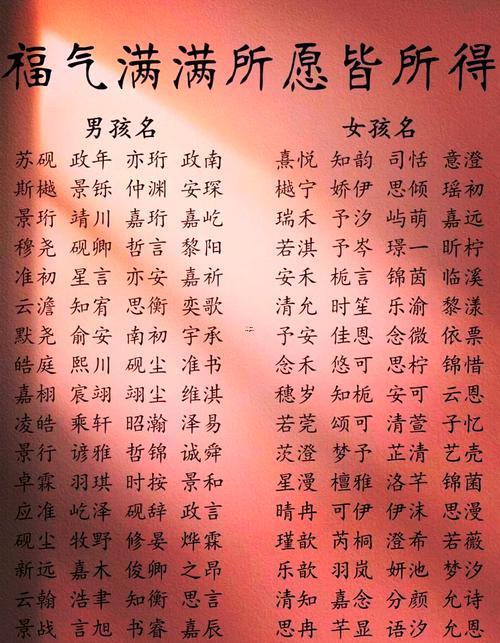 福气满满所愿皆所得
男孩名 女孩名
苏砚 政年 亦珩 政南 熹悦 知韵 司恬 意澄
斯樾 景铄 仲渊 安琛 樾宁 娇伊 思倾 瑶初
景珩 靖川 嘉珩 嘉屹 瑞禾 予汐 屿萌 嘉远
穆尧 砚卿 哲言 黎阳 若淇 予岑 璟一 昕柠
准初 星言 亦安 嘉祈 安禾 栀言 锦茵 临溪
云澹 知宥 思衡 奕歌 清允 时笙 乐渝 黎漾
默尧 俞安 南初 宇承 予安 佳恩 念微 依票
皓庭 熙川 砚尘 准书 念禾 悠可 思柠 锦惜
嘉栩 宸翊 翊尘 维淇 穗岁 知栀 安可 云恩
凌皓 乘轩 昭瀚 泽易 若莞 颂可 清萱 子忆
景行 谚雅 哲锦 诚舜 茨澄 梦予 芷清 艺壳
卓霖 羽琪 时按 景和 星漫 檀雅 洛芊 锦菌
应准 屹泽 砚辞 政言 晴冉 可伊 伊沫 思漫
砚尘 牧野 修晏 烨霖 瑾歆 芮桐 澄希 若薇
新远 嘉木 俊卿 之昂 乐歆 羽岚 妍池 梦汐
云翰 浩聿 知衡 思言 清知 嘉念 分颜 允诗
景战 言旭 书睿 嘉辰 思冉 芊昱 显语 汐允恩